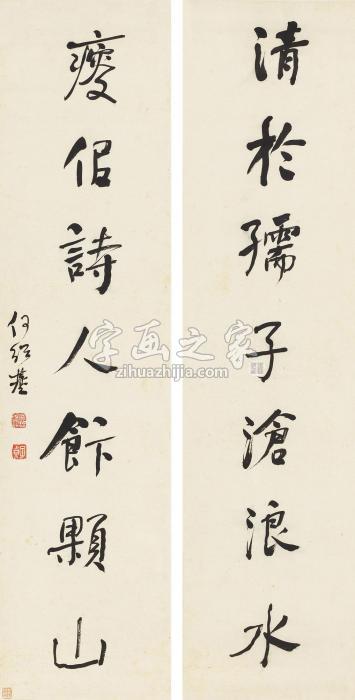 清於孺子滄浪水
瘦侶詩人飯顆山
何紹基
字画之家
zihuazhijia.com